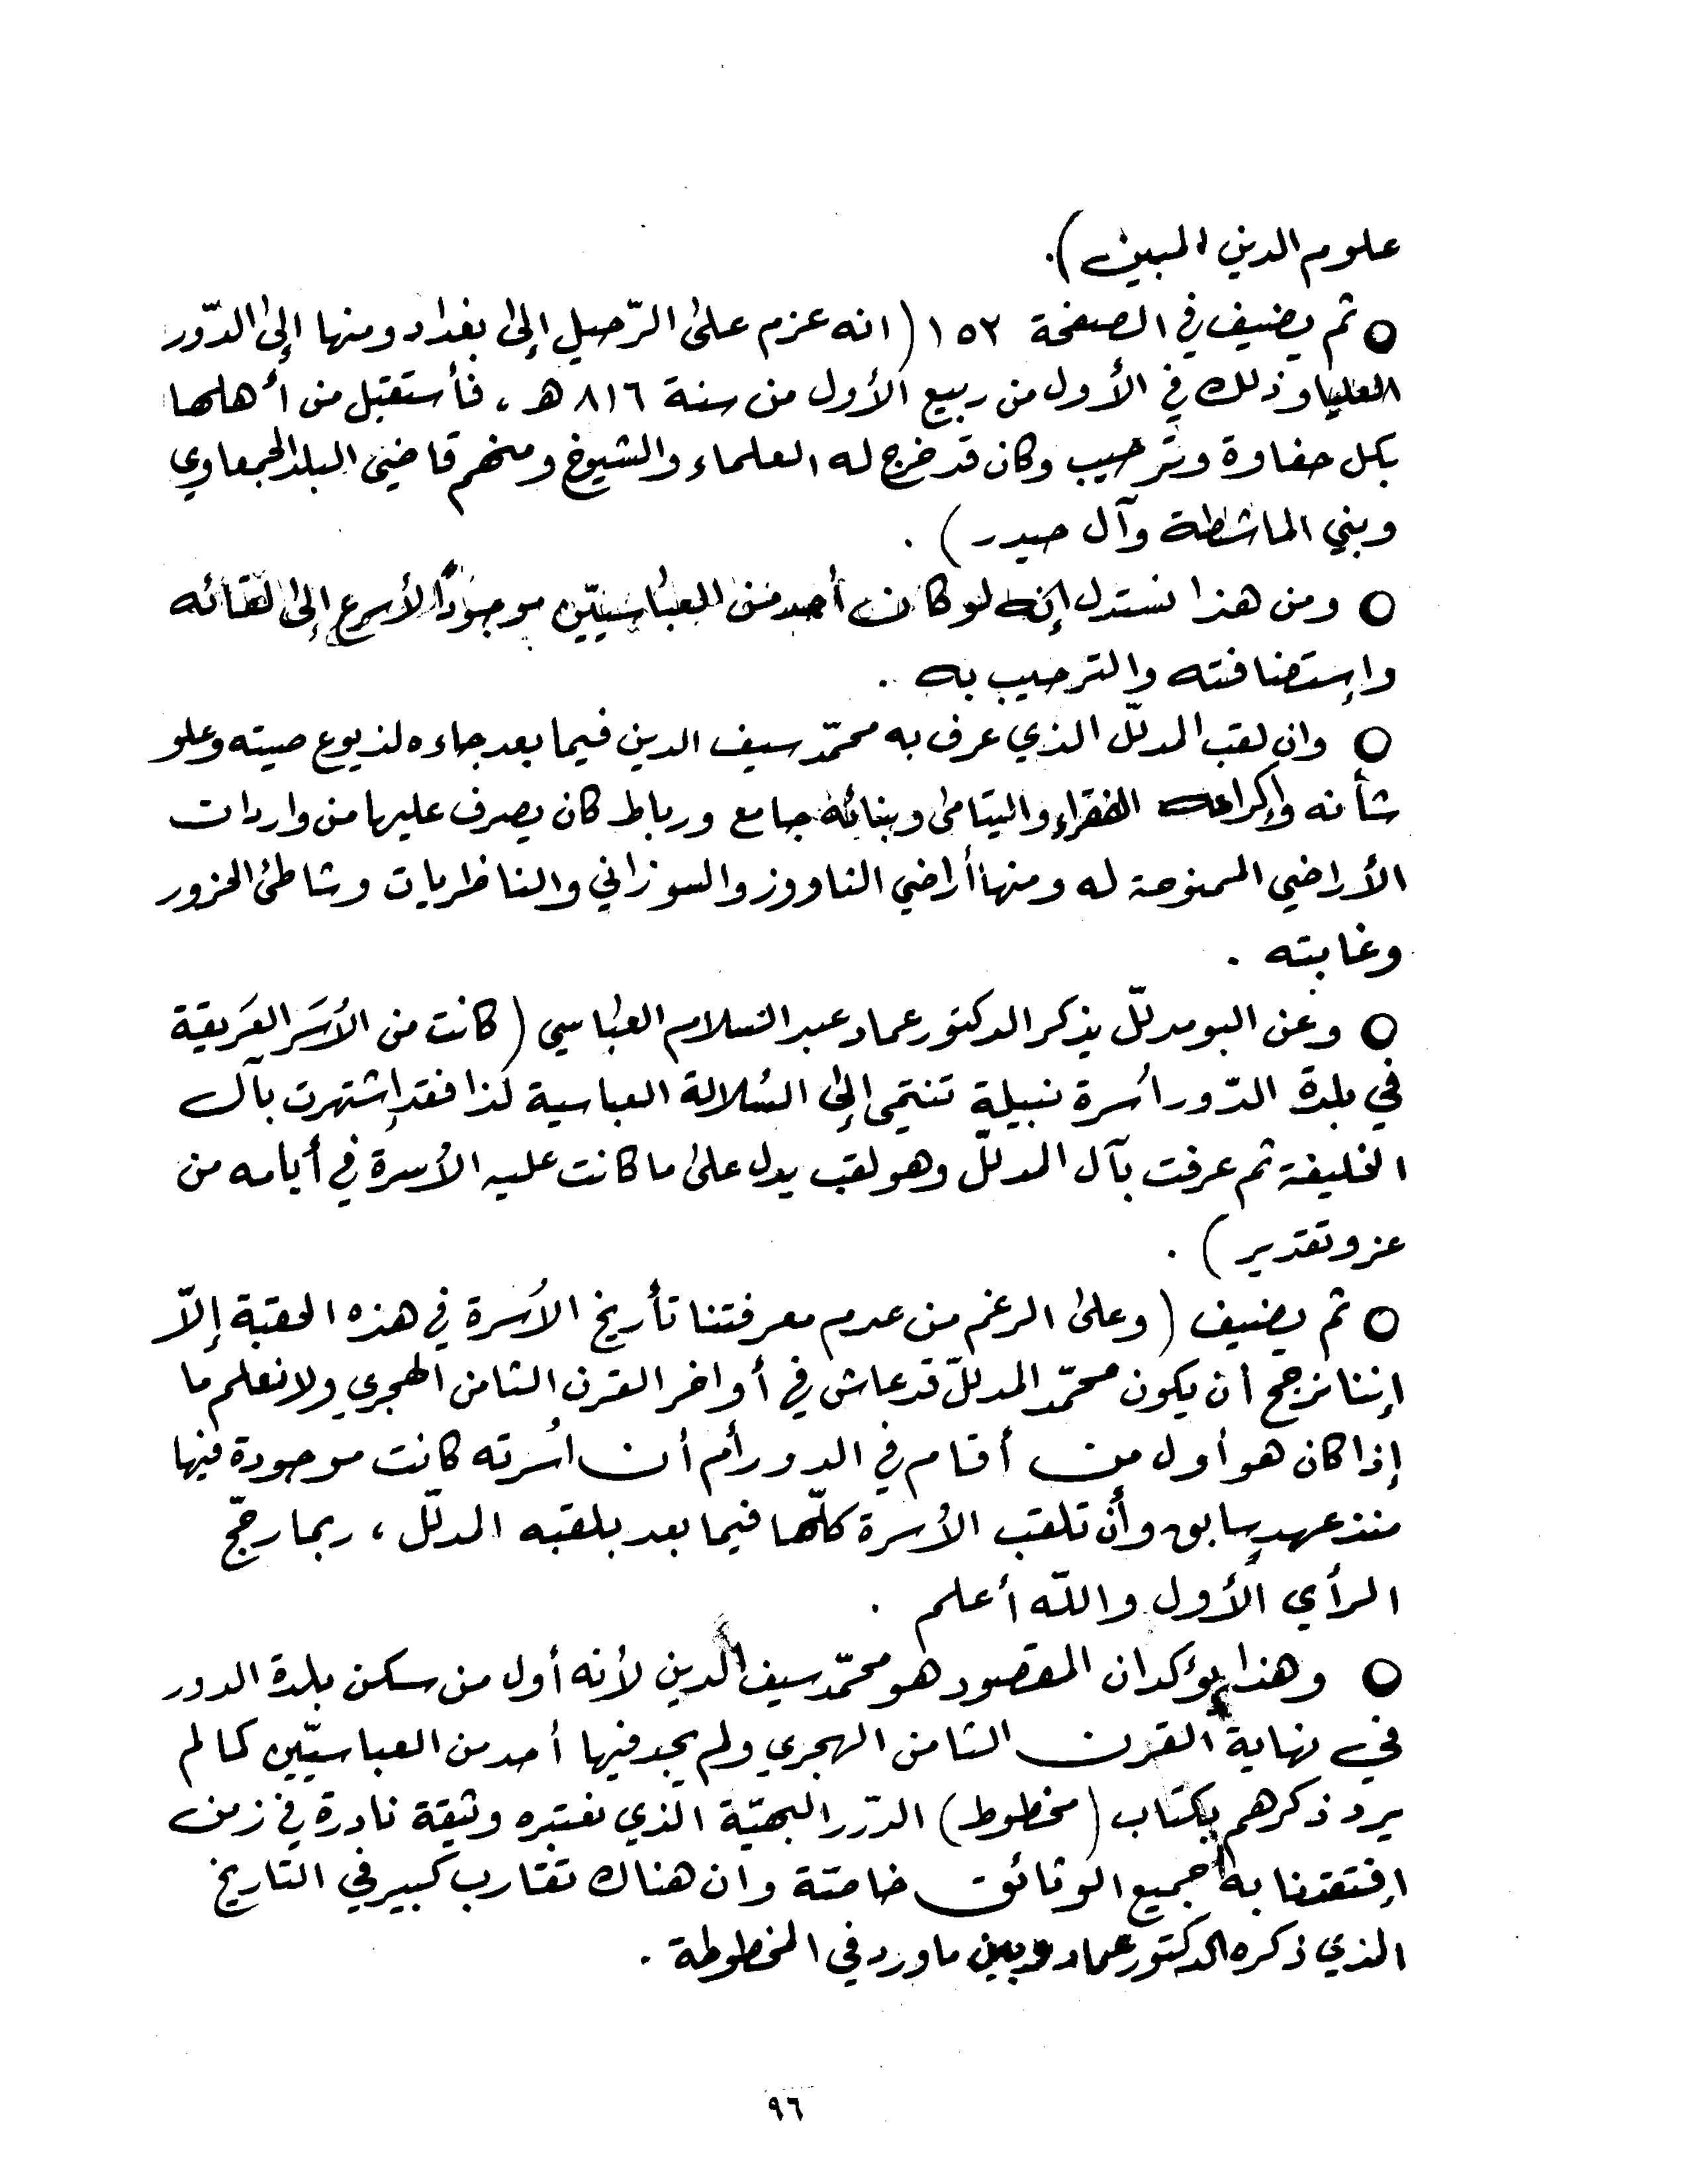 علوم الدين المبين).
○ ثم يضيف في الصفحة ١٥٢ (انه عزم على الرّحيل إلى بغداد ومنها إلى الدّور
العليا وذلك في الأول من ربيع الأول من سنة ٨١٦ هـ، فأستقبل من أهلها
بكل حفاوة وترحيب وكان قد خرج له العلماء والشيوخ ومنهم قاضي البلد الجمعاوي
وبني الماشطة وآل حيدر).
○ ومن هذا نستدل إنه لو كان أحد من العباسيّين موجوداً لأسرع إلى لقائه
وإستضافته والترحيب به.
○ وان لقب المدلّل الذي عرف به محمّد سيف الدين فيما بعد جاءه لذيوع صيته وعلو
شأنه وإكرامه الفقراء واليتامى وبنائه جامع ورباط كان يصرف عليها من واردات
الأراضي الممنوحة له ومنها أراضي الناووز والسوزاني والناظريات وشاطئ الحزور
وغابته.
○ وعن البو مدللّ يذكر الدكتور عماد عبد السلام العباسي (كانت من الأسَر العَريقة
في بلدة الدّور أسرة نبيلة تنتمي إلى السُلالة العباسية لذا فقد إشتهرت بآل
الخليفة ثم عرفت بآل المدللّ وهو لقب يدل على ما كانت عليه الأسرة في أيامه من
عز وتقدير).
○ ثم يضيف (وعلى الرغم من عدم معرفتنا تأريخ الأسرة في هذه الحقبة إلاّ
إننا نرجح أن يكون محمّد المدللّ قد عاش في أواخر القرن الثامن الهجري ولا نعلم ما
إذا كان هو أول من أقام في الدور أم أن اُسرته كانت موجودة فيها
منذ عهد سابق وأن تلقب الأسرة كلّها فيما بعد بلقبه المدلّل، ربما رجّح
الرأي الأول والله أعلم.
○ وهذا يؤكد ان المقصود هو محمّد سيف الدين لأنه أول من سكن بلدة الدور
في نهاية القرن الثامن الهجري ولم يجد فيها أحد من العباسيّين كما لم
يرد ذكرهم بكتاب (مخطوط) الدّرر البهيّة الذي نعتبره وثيقة نادرة في زمن
إفتقدنا به جميع الوثائق خاصّة وان هناك تقارب كبير في التاريخ
الذي ذكره الدكتور عماد وبين ما ورد في المخطوطة.
٩٦